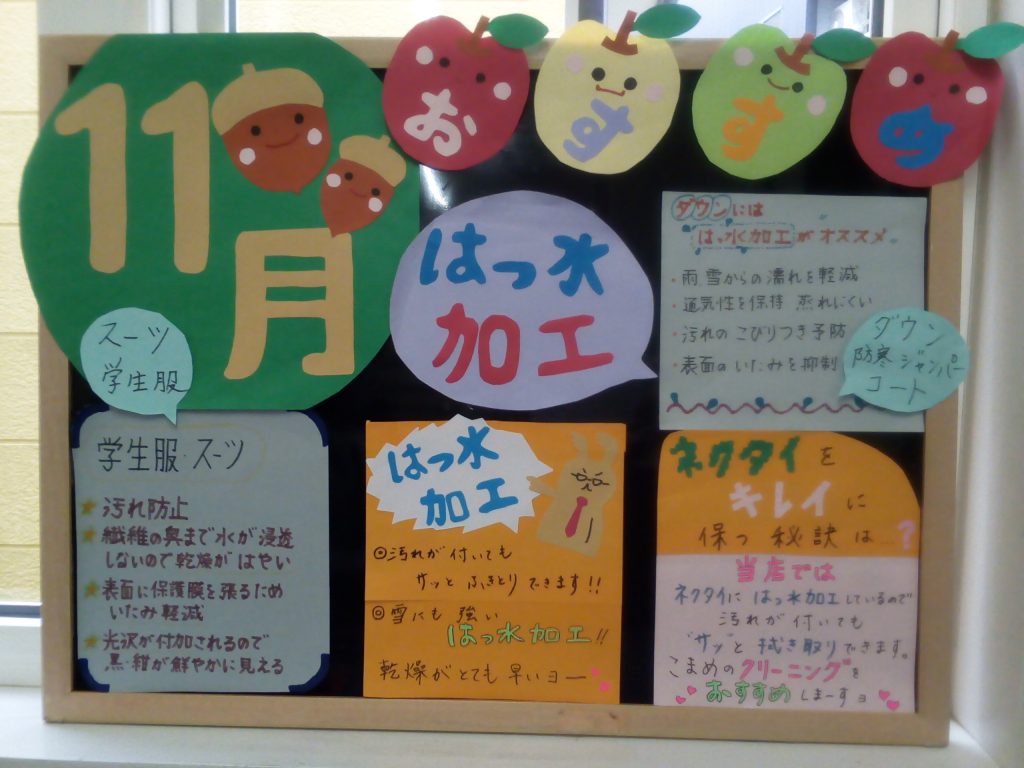 11
月
おすすめ
はっ水
加工
ダウンには
はっ水加工がオススメ
・雨雪からの濡れを軽減
・通気性を保持 蒸れにくい
・汚れのこびりつき予防
・表面のいたみを抑制
ダウン
防寒ジャンパー
コート
スーツ
学生服
学生服・スーツ
★汚れ防止
★繊維の奥まで水が浸透
しないので乾燥がはやい
★表面に保護膜を張るため
いたみ軽減
★光沢が付加されるので
黒・紺が鮮やかに見える
はっ水
加工
◎汚れが付いても
サッとふきとりできます!!
◎雪にも強い
はっ水加工!!
乾燥がとても早いヨー
ネクタイを
キレイに
保つ秘訣は…?
当店では
ネクタイにはっ水加工しているので
汚れが付いても
"サッ"と拭き取りできます。
こまめのクリーニングを
おすすめしまーすョ